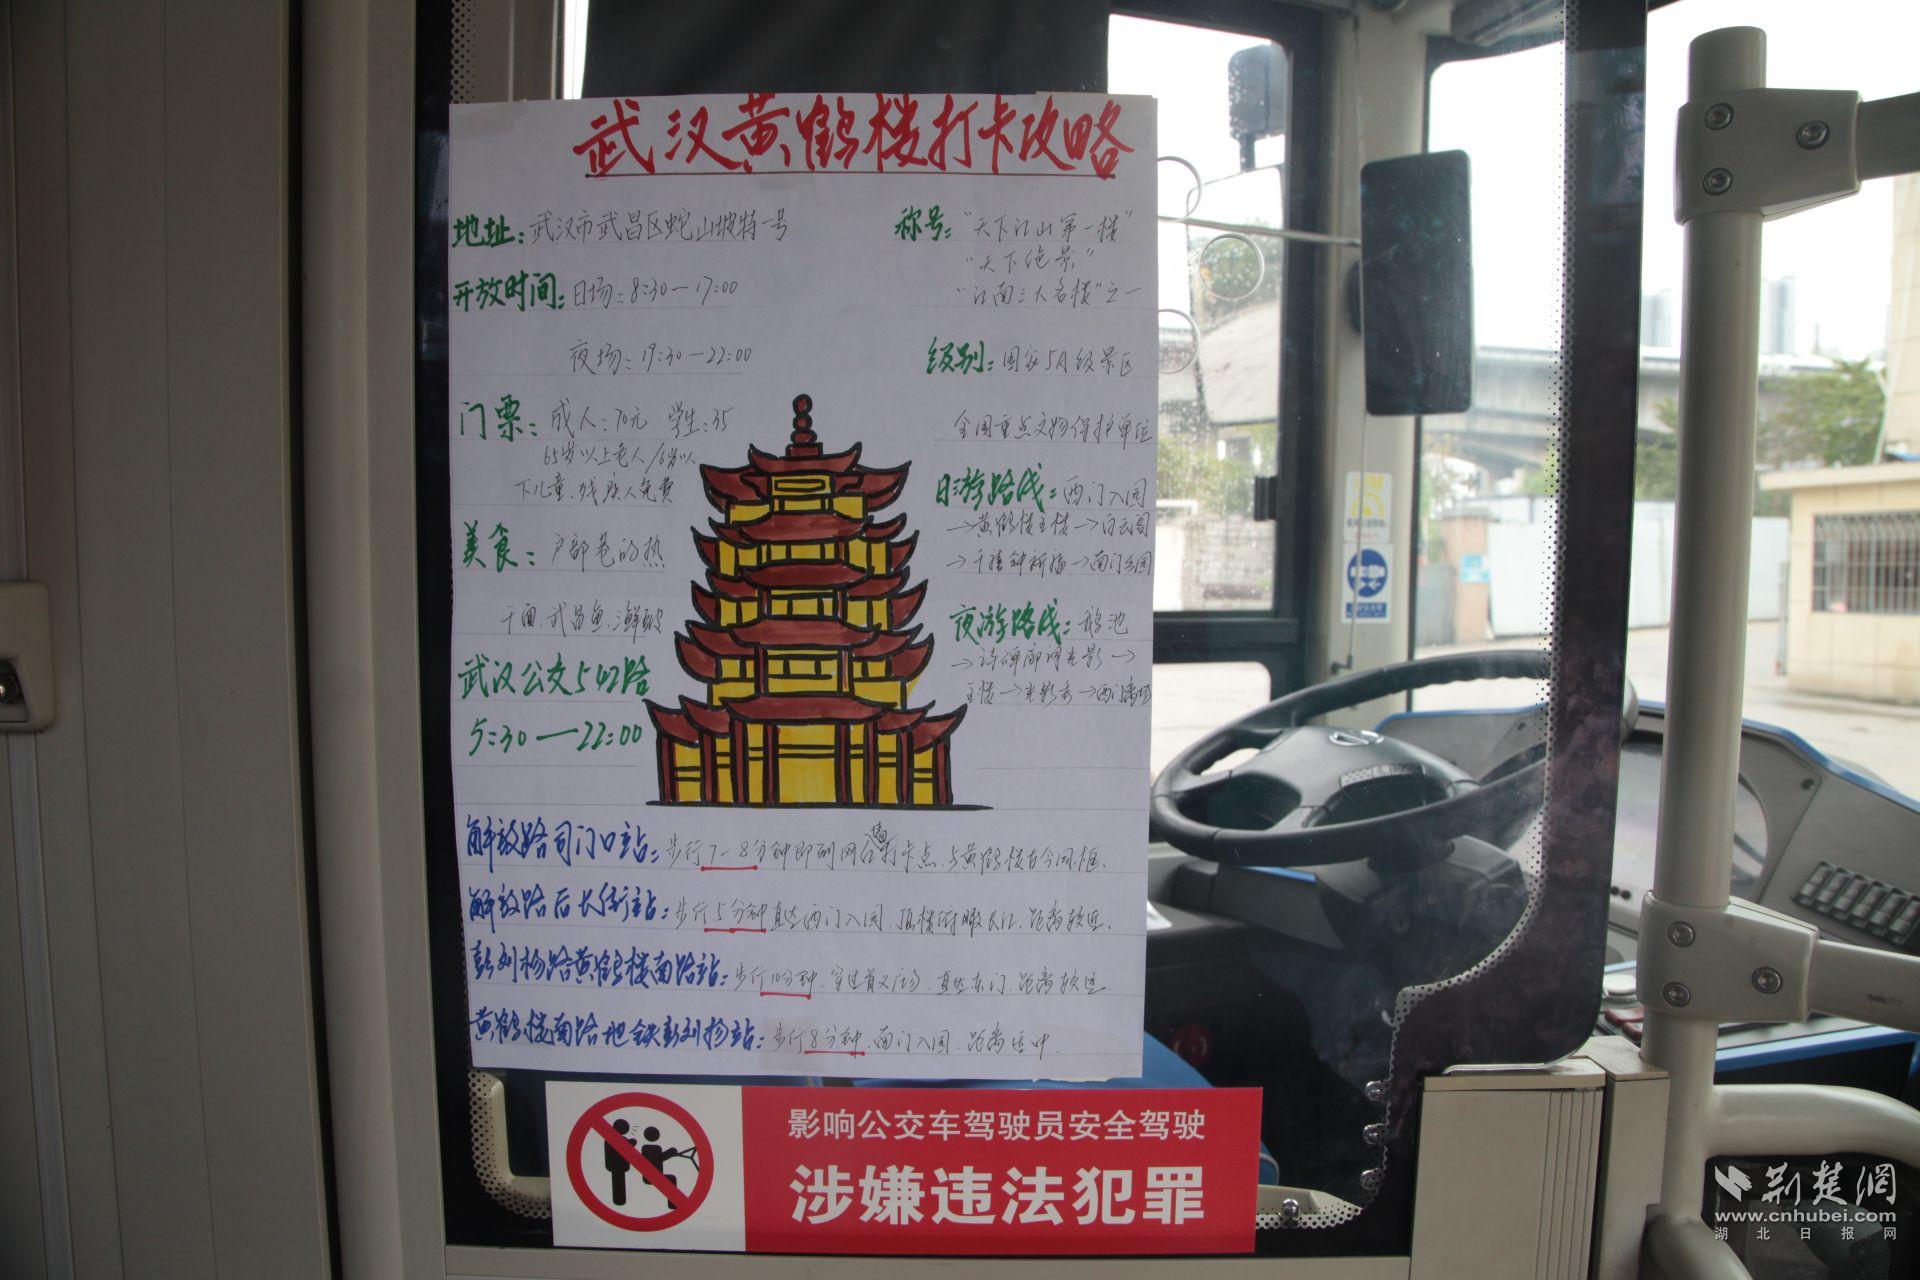 武汉黄鹤楼打卡攻略
地址：武汉市武昌区蛇山坡特一号
开放时间：日场：8:30—17:00
夜场：19:30—22:00
门票：成人：70元 学生：35
65岁以上老人/6岁以
下儿童、残疾人免费
美食：户部巷的热
干面、武昌鱼、海鲜
武汉公交542路
5:30—22:00
称号："天下江山第一楼"
"天下绝景"
"江南三大名楼"之一
级别：国家5A级景区
全国重点文物保护单位
日游路线：西门入园
→黄鹤楼主楼→白云阁
→千禧钟祈福→南门出园
夜游路线：鹅池
→诗碑廊洞光影→
主楼→光影秀→西门离场
解放路司门口站：步行7-8分钟即到网红墙打卡点、与黄鹤楼古今同框.
解放路后长街站：步行5分钟直达西门入园、顶楼俯瞰长江、距离较近.
彭刘杨路黄鹤楼南路站：步行10分钟、穿过首义广场、直达东门、距离较远.
黄鹤楼南路地铁彭刘杨站：步行8分钟、南门入园、距离适中.
影响公交车驾驶员安全驾驶
涉嫌违法犯罪
荆楚网
www.cnhubei.com
湖北日报网